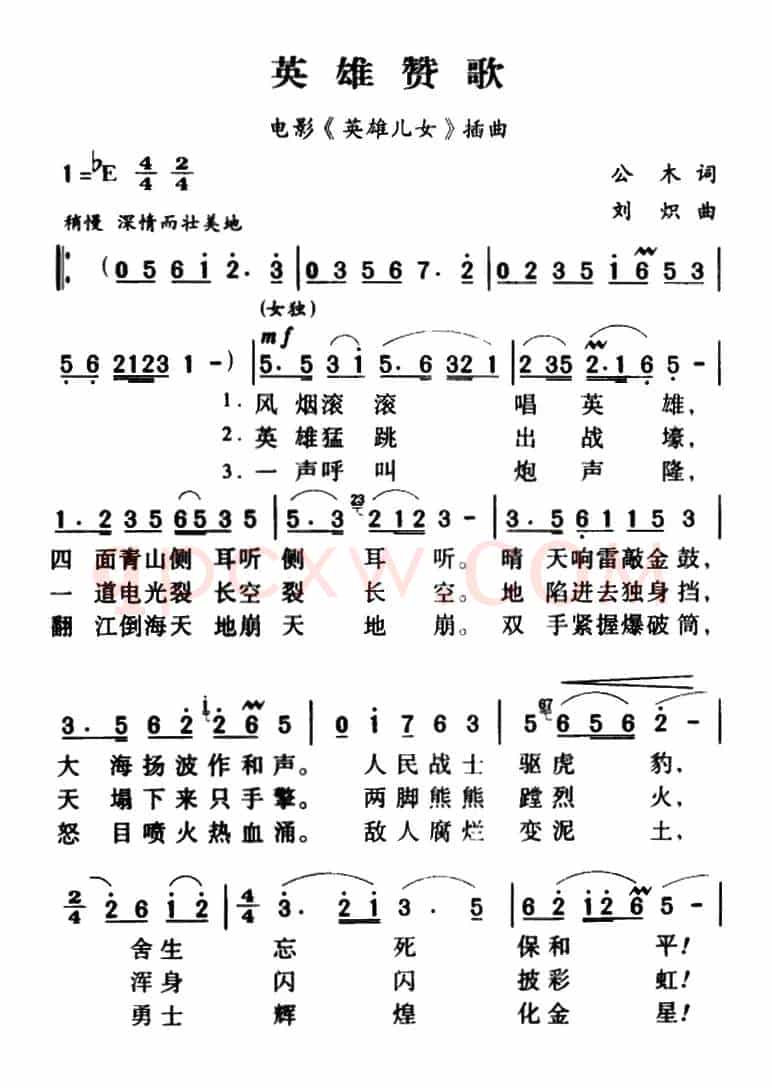 英雄赞歌
电影《英雄儿女》插曲
1=♭E 4/4 2/4
公木词
刘炽曲
稍慢 深情而壮美地
(0 5 6 1 2. 3 | 0 3 5 6 7. 2 | 0 2 3 5 1 6 5 3 |
(女独)
mf
5 6 2123 1 -) | 5. 5 3 1 5. 6 32 1 | 2 35 2.1 6 5 - |
1. 风烟滚滚 唱英雄,
2. 英雄猛跳 出战壕,
3. 一声呼叫 炮声隆,
23
1. 2 3 5 6 5 3 5 | 5. 3 2 1 2 3 - | 3. 5 6 1 1 5 3 |
四面青山侧耳听侧耳听。晴天响雷敲金鼓,
一道电光裂长空裂长空。地陷进去独身挡,
翻江倒海天地崩天地崩。双手紧握爆破筒,
qpcxw.COM
1 67
3. 5 6 2 2 6 5 | 0 1 7 6 3 5 6 5 6 2 - |
大海扬波作和声。人民战士驱虎豹,
天塌下来只手擎。两脚熊熊蹚烈火,
怒目喷火热血涌。敌人腐烂变泥土,
2/4 2 6 1 2 | 4/4 3. 2 1 3. 5 | 6 2 1 2 6 5 - |
舍生忘死保和平!
浑身闪闪披彩虹!
勇士辉煌化金星!